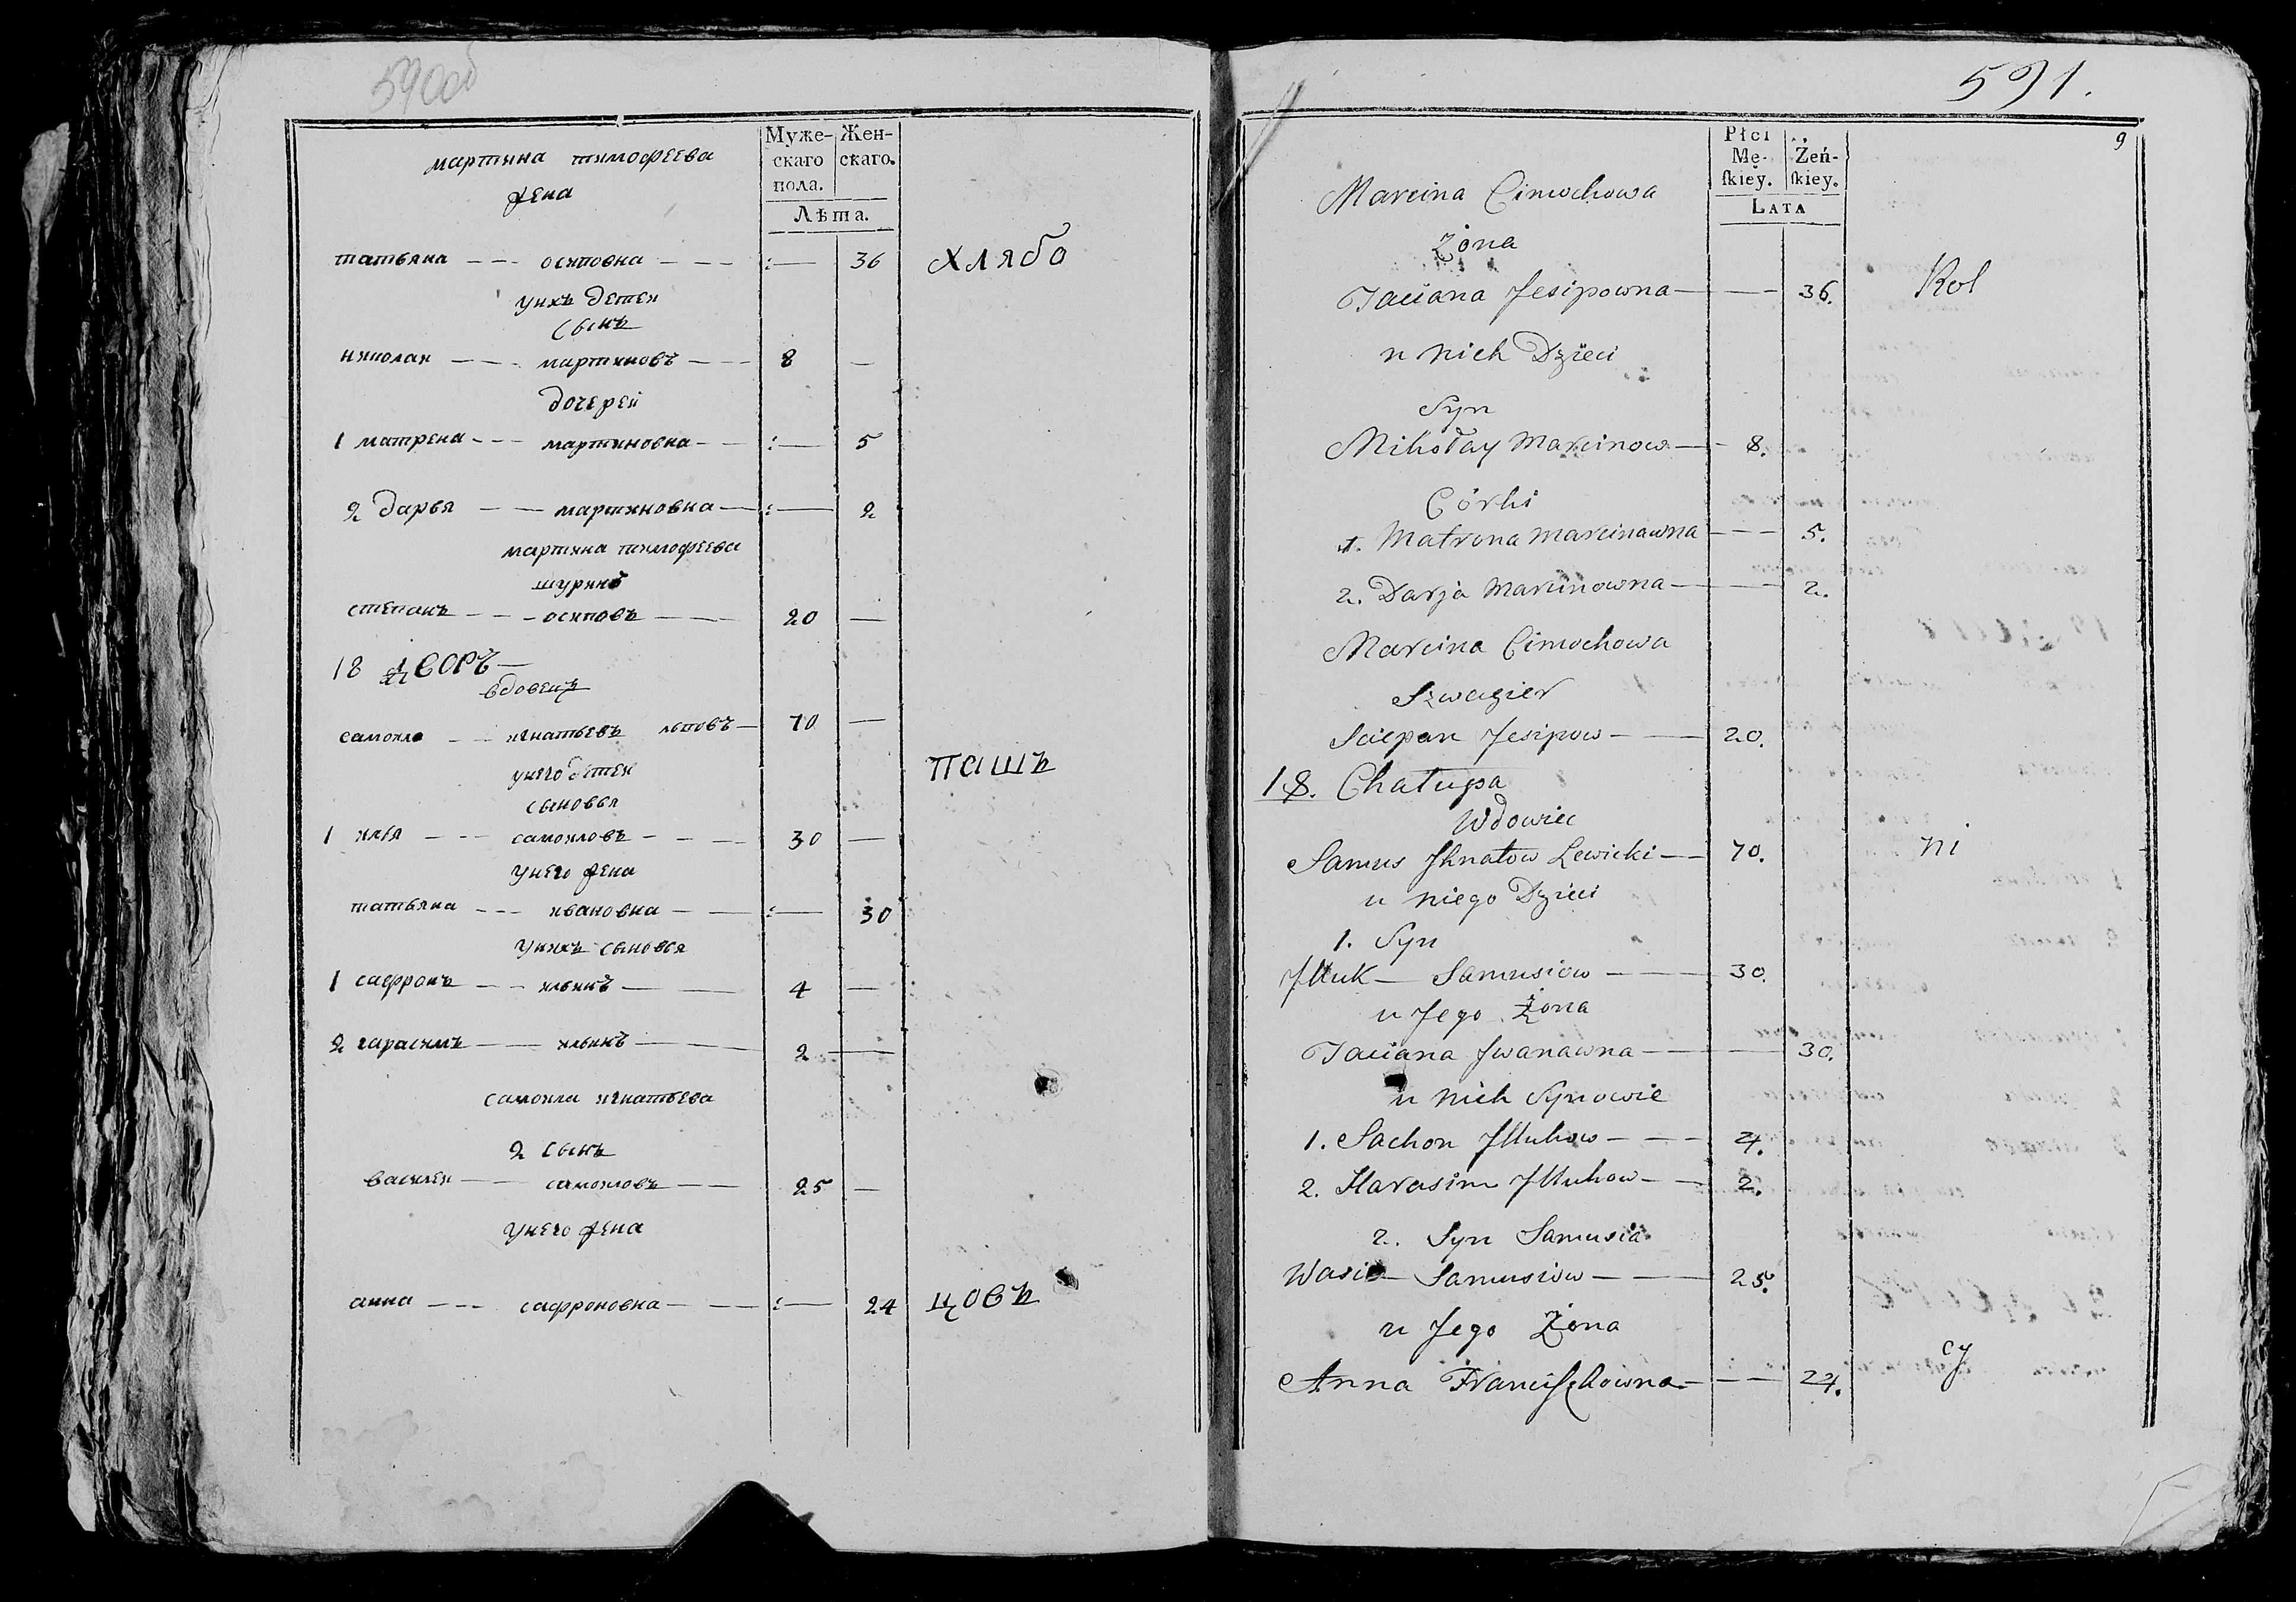 590об
Муже- Жен-
скаго скаго.
пола.
Лѣта.
мартина тимофеева
жена
татьяна --- осиповна --- :— 36 хлябо
унихъ детеи
сынъ
николаи --- мартиновъ --- 8 —
дочереи
1 матрена --- мартиновна -- :— 5
2 дарья -- мартиновна — :— 2
мартина тимофеева
шуринъ
степанъ --- осиповъ --- 20 —
18 дворъ —
вдовецъ
самоила -- игнатьевъ — 70 —
унего детеи пашъ
сыновья
1 илья --- самоиловъ --- 30 —
унего жена
татьяна --- ивановна --- :— 30
унихъ сыновья
1 сафронъ -- ильинъ — 4 —
2 гарасимъ — ильинъ — 2 —
самоила игнатьева
2 сынъ
василеи — самоиловъ — 25 —
унего жена
анна --- сафроновна --- :— 24 цовъ
591.
9
Płci
Mę- Żeń-
ſkiey. ſkiey.
LATA
Marcina Cimochowa
Żona
Taciana Jesipowna — — 36. Rol
u nich Dzieci
Syn
Mikołay Marcinow — 8.
Córki
1. Matrona Marcinawna --- 5.
2. Darja Marcinowna — — 2.
Marcina Cimochowa
Szwagier
Sciepan Jesipow — 20.
18. Chałupa
Wdowiec
Samus Jhnatow Lewicki — 70. ni
u niego Dzieci
1. Syn
Jlluk — Samusiow — 30.
u Jego Żona
Taciana Jwanawna — — 30.
u nich Synowie
1. Sachon Jlluhow --- 4.
2. Harasim Jlluhow -- 2.
2. Syn Samusia
Wasil — Samusiow — 25.
u Jego Żona
Anna Franciſzkowna — — 24. cy